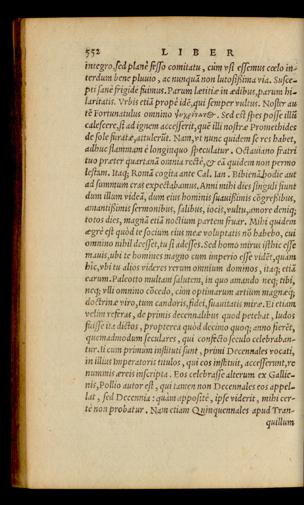 552 LIBER
integro, sed planè fesso comitatu, cùm vsi essemus cœlo in-
terdum bene pluuio, ac nunquā non lutosissima via. Susce-
pti sanè frigidè fuimus. Parum lætitiæ in ædibus, parum hi-
laritatis. Vrbis etiā propè idē, qui semper vultus. Noster au
tē Fortunatulus omnino Sed est spes posse illū
calescere, si ad ignem accesserit, què illi nostræ Promethides
de sole furatæ, attulerūt. Nam, vt nunc quidem se res habet,
adhuc flammam è longinquo speculatur. Octauiano fratri
tuo præter quartanā omnia rectè, & eā quidem non permo
lestam. Itaq; Romā cogita ante Cal. Ian. Bibienā hodie aut
ad summum cras expectabamus. Anni mihi dies singuli fiunt
dum illum videā, dum eius hominis suauissimis cōgressibus,
amantissimis sermonibus, salibus, iocis, vultu, amore deniq;
totos dies, magnā etiā noctium partem fruar. Mihi quidem
ægrè est quòd te socium eius meæ voluptatis nō habebo, cui
omnino nihil deesset, tu si adesses. Sed homo mirus istic esse
mauis, vbi te homines magno cum imperio esse vidēt, quàm
hîc, vbi tu alios videres rerum omnium dominos, itaq; etiā
earum. Paleotto multam salutem, in quo amando neq; tibi,
neq; vlli omnino cōcedo, cùm optimarum artium magnæq;
doctrinæ viro, tum candoris, fidei, suauitatis miræ. Ei etiam
velim referas, de primis decennalibus quod petebat, ludos
fuisse ita dictos, propterea quòd decimo quoq; anno fierēt,
quemadmodum seculares, qui confecto seculo celebraban-
tur. ij cùm primum instituti sunt, primi Decennales vocati,
in illius Imperatoris titulos, qui eos instituit, accesserunt, re
nummis æreis inscripta. Eos celebrasse alterum ex Gallie-
nis, Pollio autor est, qui tamen non Decennales eos appel-
lat, sed Decennia: quàm appositè, ipse viderit, mihi cer-
tè non probatur. Nam etiam Quinquennales apud Tran-
quillum